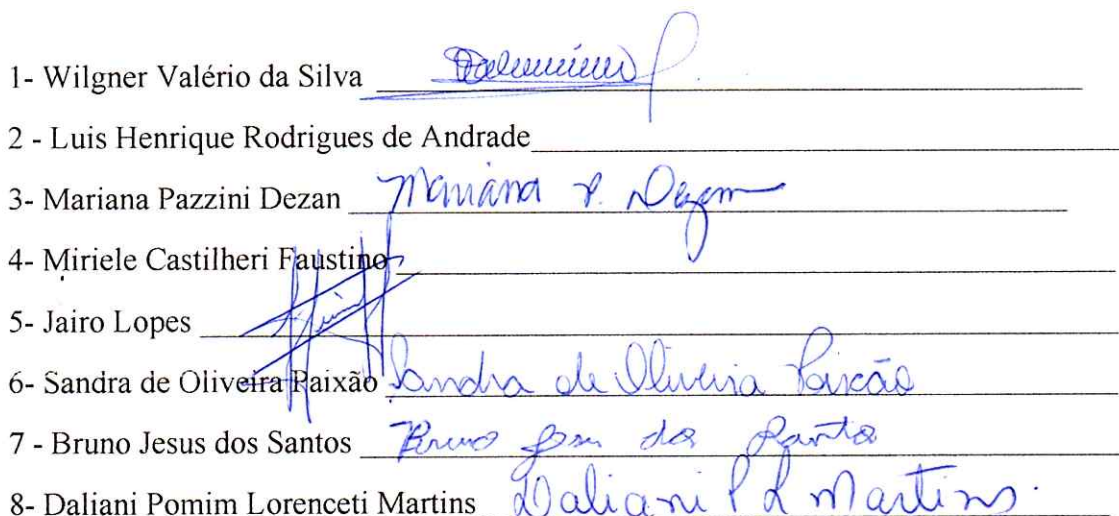 1- Wilgner Valério da Silva
2 - Luis Henrique Rodrigues de Andrade
3- Mariana Pazzini Dezan Mariana P. Dezan
4- Miriele Castilheri Faustino
5- Jairo Lopes
6- Sandra de Oliveira Paixão Sandra de Oliveira Paixão
7 - Bruno Jesus dos Santos Bruno Jesus dos Santos
8- Daliani Pomim Lorenceti Martins Daliani P L Martins.